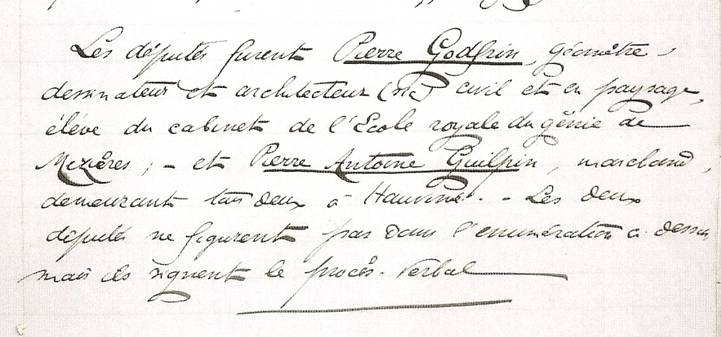 Les députés furent Pierre Godfrin, géomètre,
dessinateur et architecteur (sic) civil et en paysage,
élève du cabinet de l'École royale du génie de
Mezières ; - et Pierre Antoine Guilpin, marchand,
demeurant tous deux à Hauviné. - Les deux
députés ne figurent pas dans l'énumération ci-dessus
mais ils signent le procès-verbal